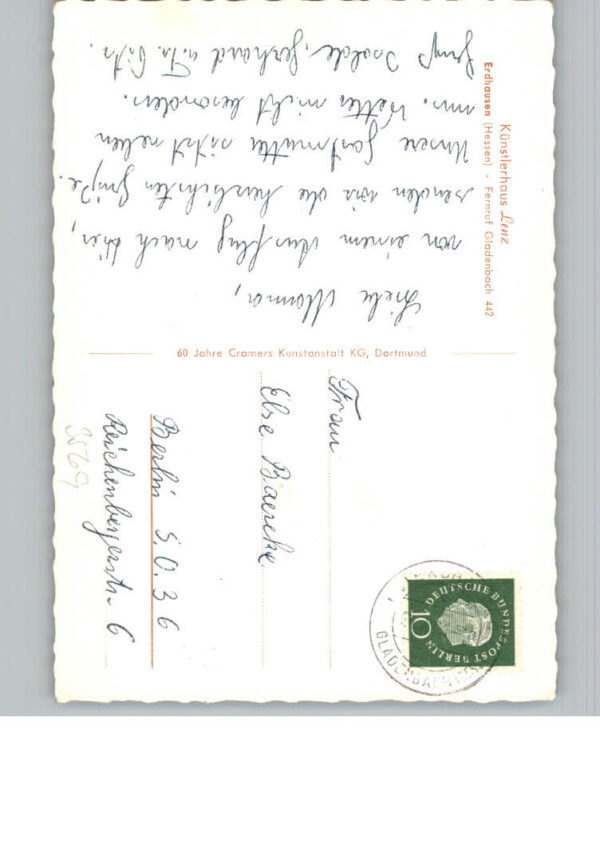 Künstlerhaus Lenz
Erdhausen (Hessen) - Fernruf Gladenbach 442
Liebe Mama,
von einem Ausflug nach hier,
senden wir die herzlichsten Grüße.
Unsere Gastmutter sitzt neben
uns. Wetter nicht besonders.
Gruß Isolde, Gerhard u. Fr.
60 Jahre Cramers Kunstanstalt KG, Dortmund
Frau
Else Baencke
Berlin S.O. 36
Reichenbergerstr. 6
3569
DEUTSCHE BUNDESPOST BERLIN
10
GLADENBACH